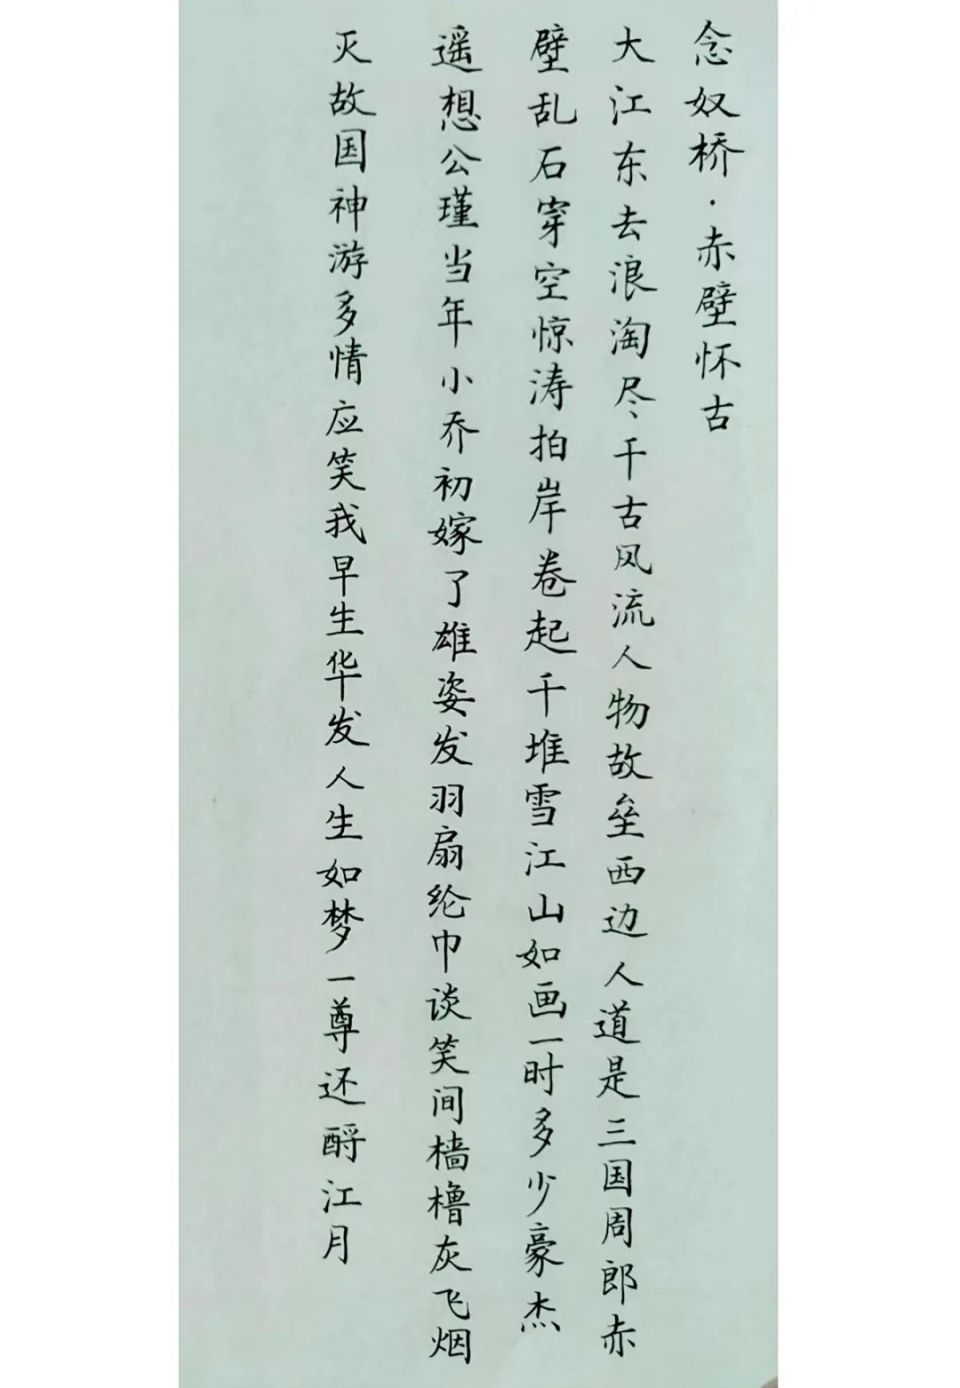 念奴桥·赤壁怀古
大江东去浪淘尽千古风流人物故垒西边人道是三国周郎赤
壁乱石穿空惊涛拍岸卷起千堆雪江山如画一时多少豪杰
遥想公瑾当年小乔初嫁了雄姿发羽扇纶巾谈笑间樯橹灰飞烟
灭故国神游多情应笑我早生华发人生如梦一尊还酹江月